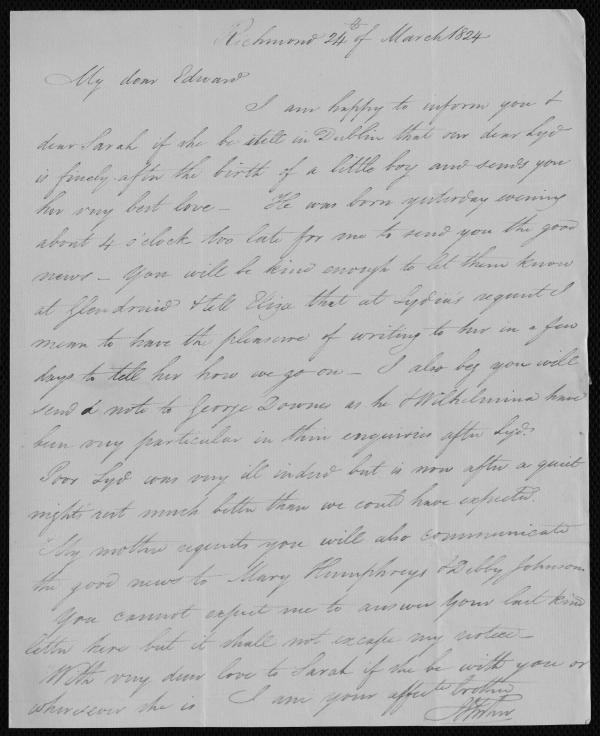 Richmond 24th of March 1824
My dear Edward
I am happy to inform you &
dear Sarah if she be still in Dublin that our dear Lyd
is finely after the birth of a little boy and sends you
her very best love - He was born yesterday evening
about 4 o'clock too late for me to send you the good
news - You will be kind enough to let them know
at Glendruid & tell Eliza that at Lydia's request I
mean to have the pleasure of writing to her in a few
days to tell her how we go on - I also beg you will
send a note to George Downes as he & Wilhelmina have
been very particular in their enquiries after Lyd.
Poor Lyd was very ill indeed but is now after a quiet
nights rest much better than we could have expected.
My mother requests you will also communicate
the good news to Mary Humphreys & Debby Johnson
You cannot expect me to answer your last kind
letter here but it shall not escape my notice -
With very dear love to Sarah if she be with you or
wheresoever she is I am your affecte brother